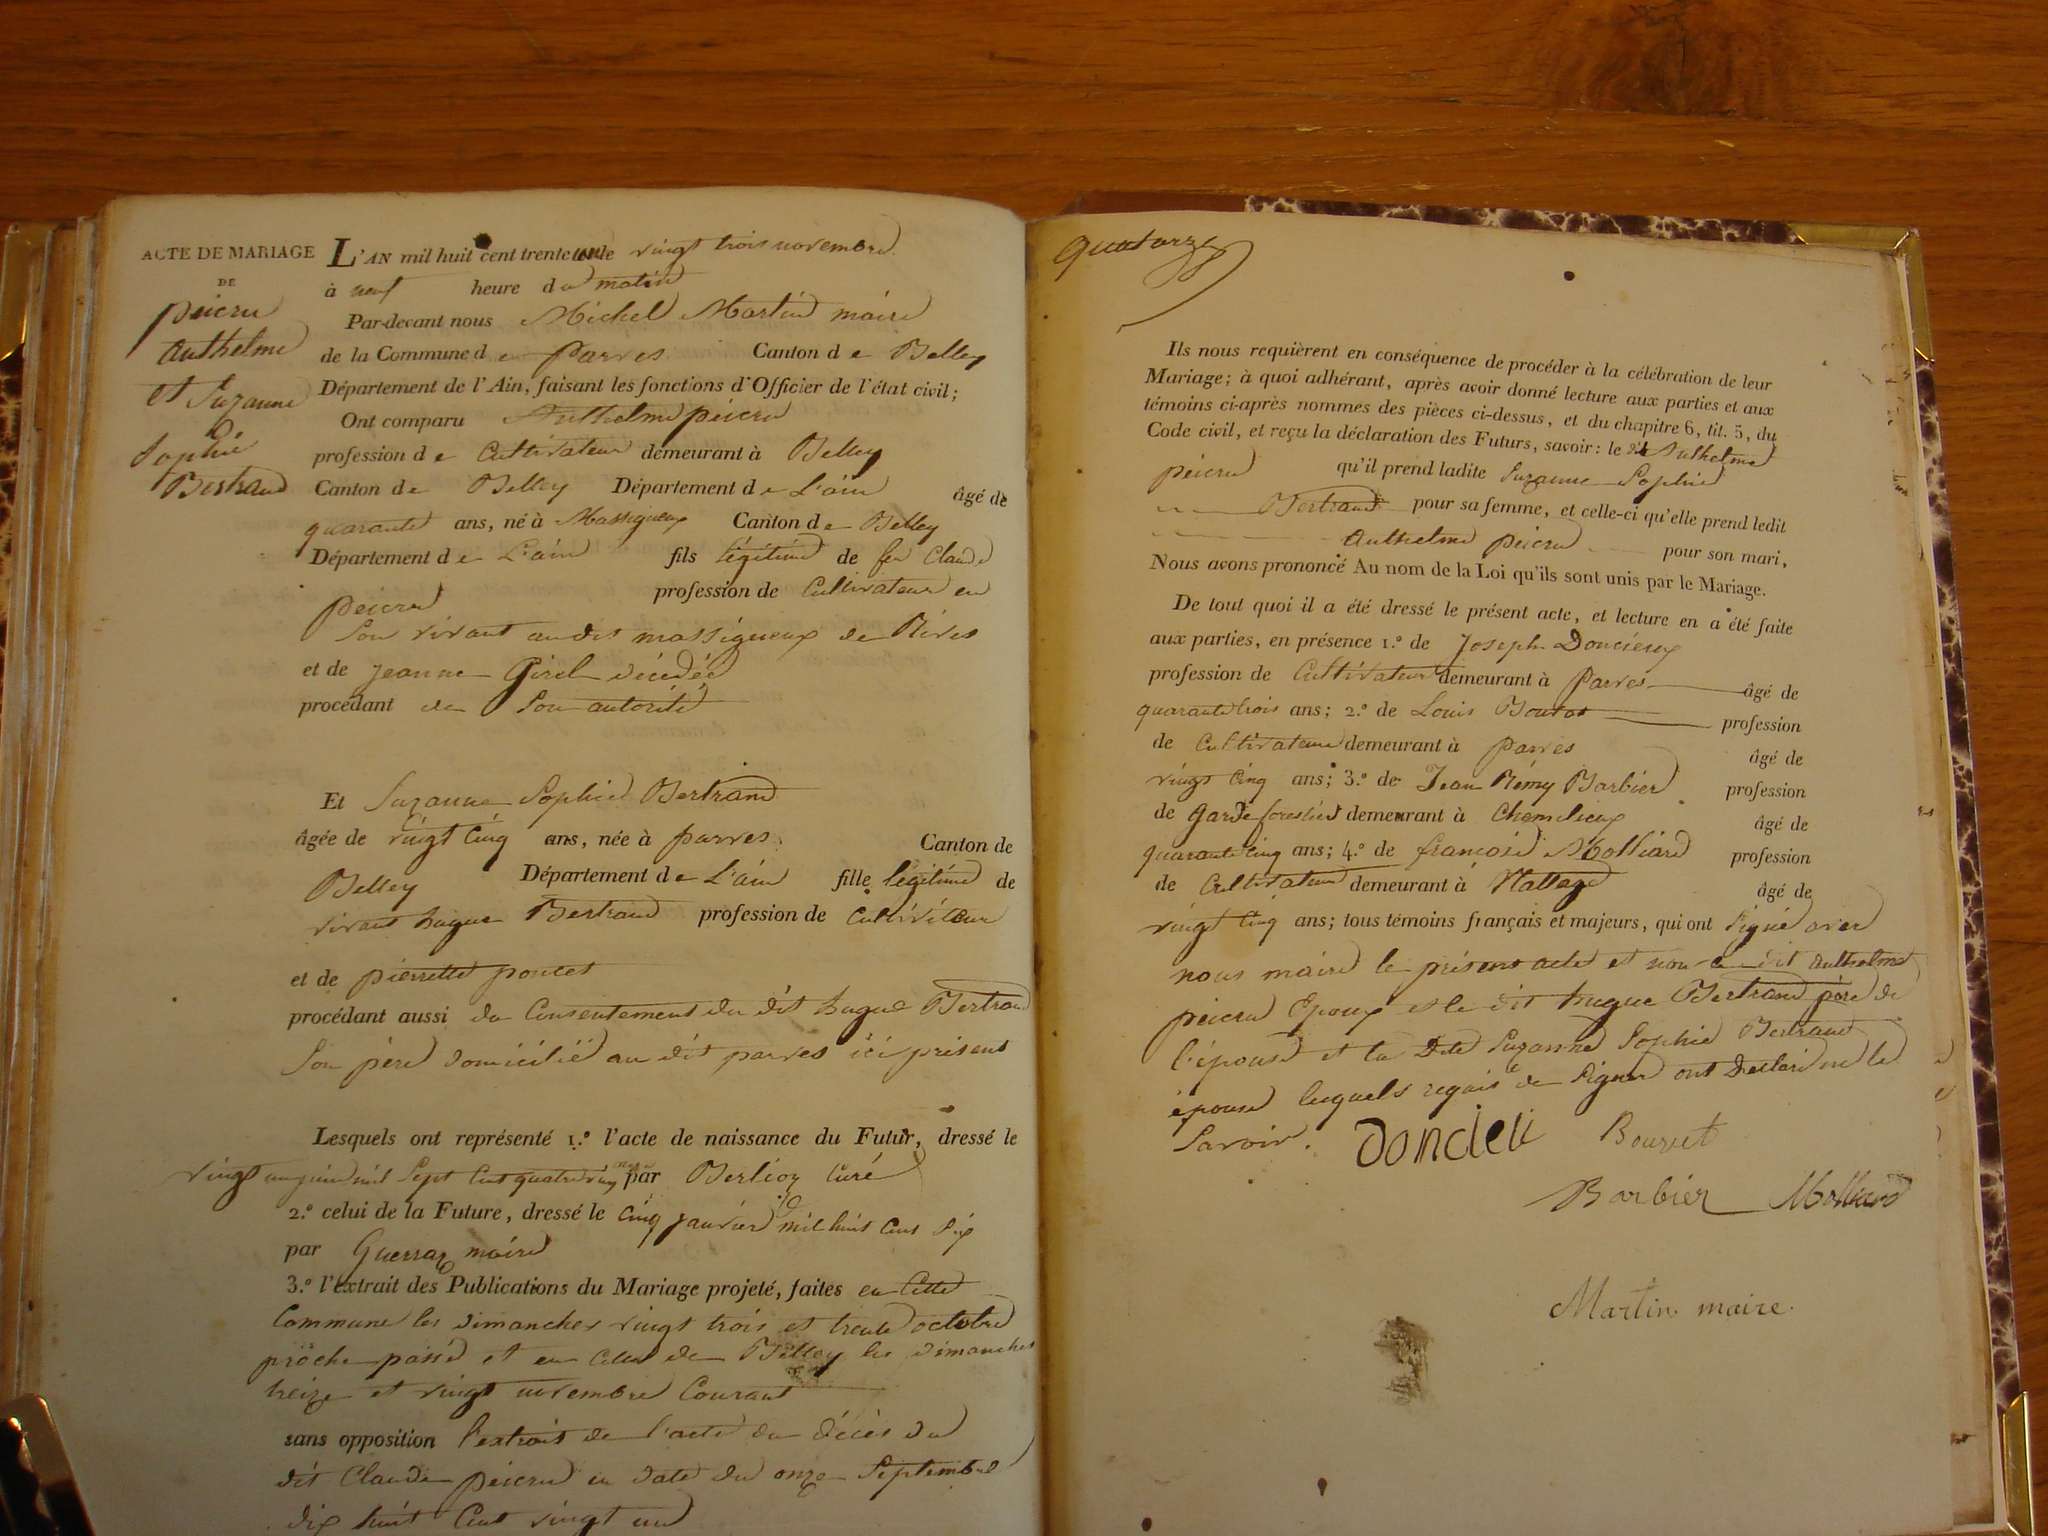 ACTE DE MARIAGE
DE
peicru
Anthelme
et Suzanne
Sophie
Bertrand
L'AN mil huit cent trente un le vingt trois novembre
à neuf heure du matin
Par-devant nous Michel Martin maire
de la Commune de Parves Canton de Belley
Département de l'Ain, faisant les fonctions d'Officier de l'état civil;
Ont comparu Anthelme peicru
profession de Cultivateur demeurant à Belley
Canton de Belley Département de L'ain âgé de
quarante ans, né à Massigneux Canton de Belley
Département de L'ain fils légitime de feu Claude
peicru profession de Cultivateur en
Son vivant au dit massigneux de Rives
et de jeanne Girel décédée
procédant de Son autorité
Et Suzanne Sophie Bertrand
âgée de vingt cinq ans, née à parves Canton de
Belley Département de L'ain fille légitime de
vivant hugue Bertrand profession de Cultivateur
et de pierrette poncet
procédant aussi du Consentement du dit hugue Bertrand
Son père domicilié au dit parves ici présent
Lesquels ont représenté 1.º l'acte de naissance du Futur, dressé le
vingt un juin mil Sept Cent quatre ving onze par Berlioz Curé
2.º celui de la Future, dressé le cinq janvier mil huit Cent Six
par Guerraz maire
3.º l'extrait des Publications du Mariage projeté, faites en Cette
Commune les dimanches vingt trois et trente octobre
proche passé et en celle de Belley les dimanches
treize et vingt novembre Courant
sans opposition l'extrait de l'acte du décès du
dit Claude peicru en date du onze Septembre
dix huit Cent vingt un
quatorze
Ils nous requièrent en conséquence de procéder à la célébration de leur
Mariage; à quoi adhérant, après avoir donné lecture aux parties et aux
témoins ci-après nommes des pièces ci-dessus, et du chapitre 6, tit. 5, du
Code civil, et reçu la déclaration des Futurs, savoir: le dit Anthelme
peicru qu'il prend ladite Suzanne Sophie
Bertrand pour sa femme, et celle-ci qu'elle prend ledit
Anthelme peicru pour son mari,
Nous avons prononcé Au nom de la Loi qu'ils sont unis par le Mariage.
De tout quoi il a été dressé le présent acte, et lecture en a été faite
aux parties, en présence 1.º de Joseph Doncieux
profession de Cultivateur demeurant à Parves âgé de
quarante trois ans; 2.º de Louis profession
de Cultivateur demeurant à parves âgé de
vingt cinq ans; 3.º de Jean Rémy Barbier profession
de garde forestier demeurant à Chemilieux âgé de
quarante cinq ans; 4.º de françois Molliard profession
de Cultivateur demeurant à Nattage âgé de
vingt cinq ans; tous témoins français et majeurs, qui ont Signé avec
nous maire le présent acte et non le dit anthelme
peicru Epoux et le dit hugue Bertrand père de
l'épouse et la Dite Suzanne Sophie Bertrand
épouse lesquels requis de Signer ont Déclaré ne le
Savoir.
Doncieu Bouvet
Barbier Molliard
Martin maire.